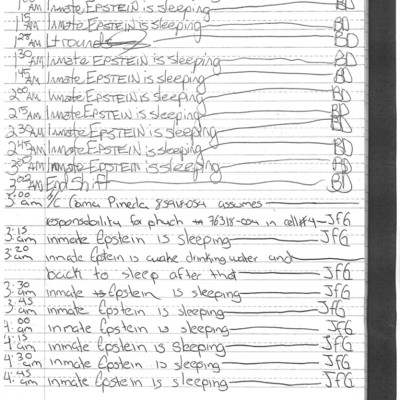 AM Inmate EPSTEIN is sleeping BD
1:15 AM Inmate EPSTEIN is sleeping BD
AM Lt rounds BD
1:30 AM Inmate EPSTEIN is sleeping BD
1:45 AM Inmate EPSTEIN is sleeping BD
2:00 AM Inmate EPSTEIN is sleeping BD
2:15 AM Inmate EPSTEIN is sleeping BD
2:30 AM Inmate EPSTEIN is sleeping BD
2:45 AM Inmate EPSTEIN is sleeping BD
AM Inmate EPSTEIN is sleeping BD
AM End Shift BD
3:00 am I/C Pineda 85918-054 assumes
responsibility for 76318-054 in cell #4 JfG
3:15 am inmate Epstein is sleeping JfG
3:20 am inmate Epstein is awake drinking water and
back to sleep after that JfG
3:30 am inmate Epstein is sleeping JfG
3:45 am inmate Epstein is sleeping JfG
4:00 am inmate Epstein is sleeping JfG
4:15 am inmate Epstein is sleeping JfG
4:30 am inmate Epstein is sleeping JfG
4:45 am inmate Epstein is sleeping JfG